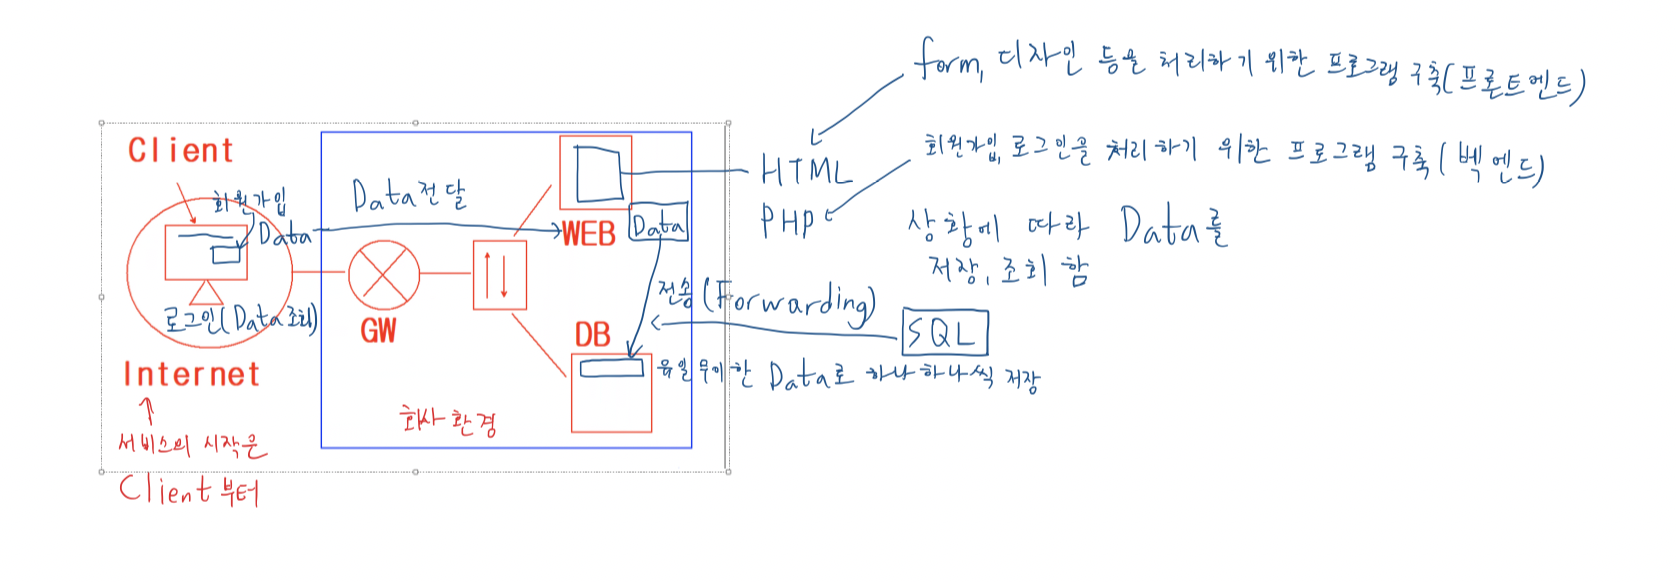 form, 디자인 등을 처리하기 위한 프로그램 구축(프론트엔드)
회원가입, 로그인을 처리하기 위한 프로그램 구축(벡엔드)
HTML
PHP
상황에 따라 Data를
저장, 조회 함
Client
회원가입
Data
Data전달
WEB
Data
전송(Forwarding)
SQL
로그인(Data조회)
GW
DB
유일무이한 Data로 하나하나씩 저장
Internet
회사환경
서비스의 시작은
Client부터